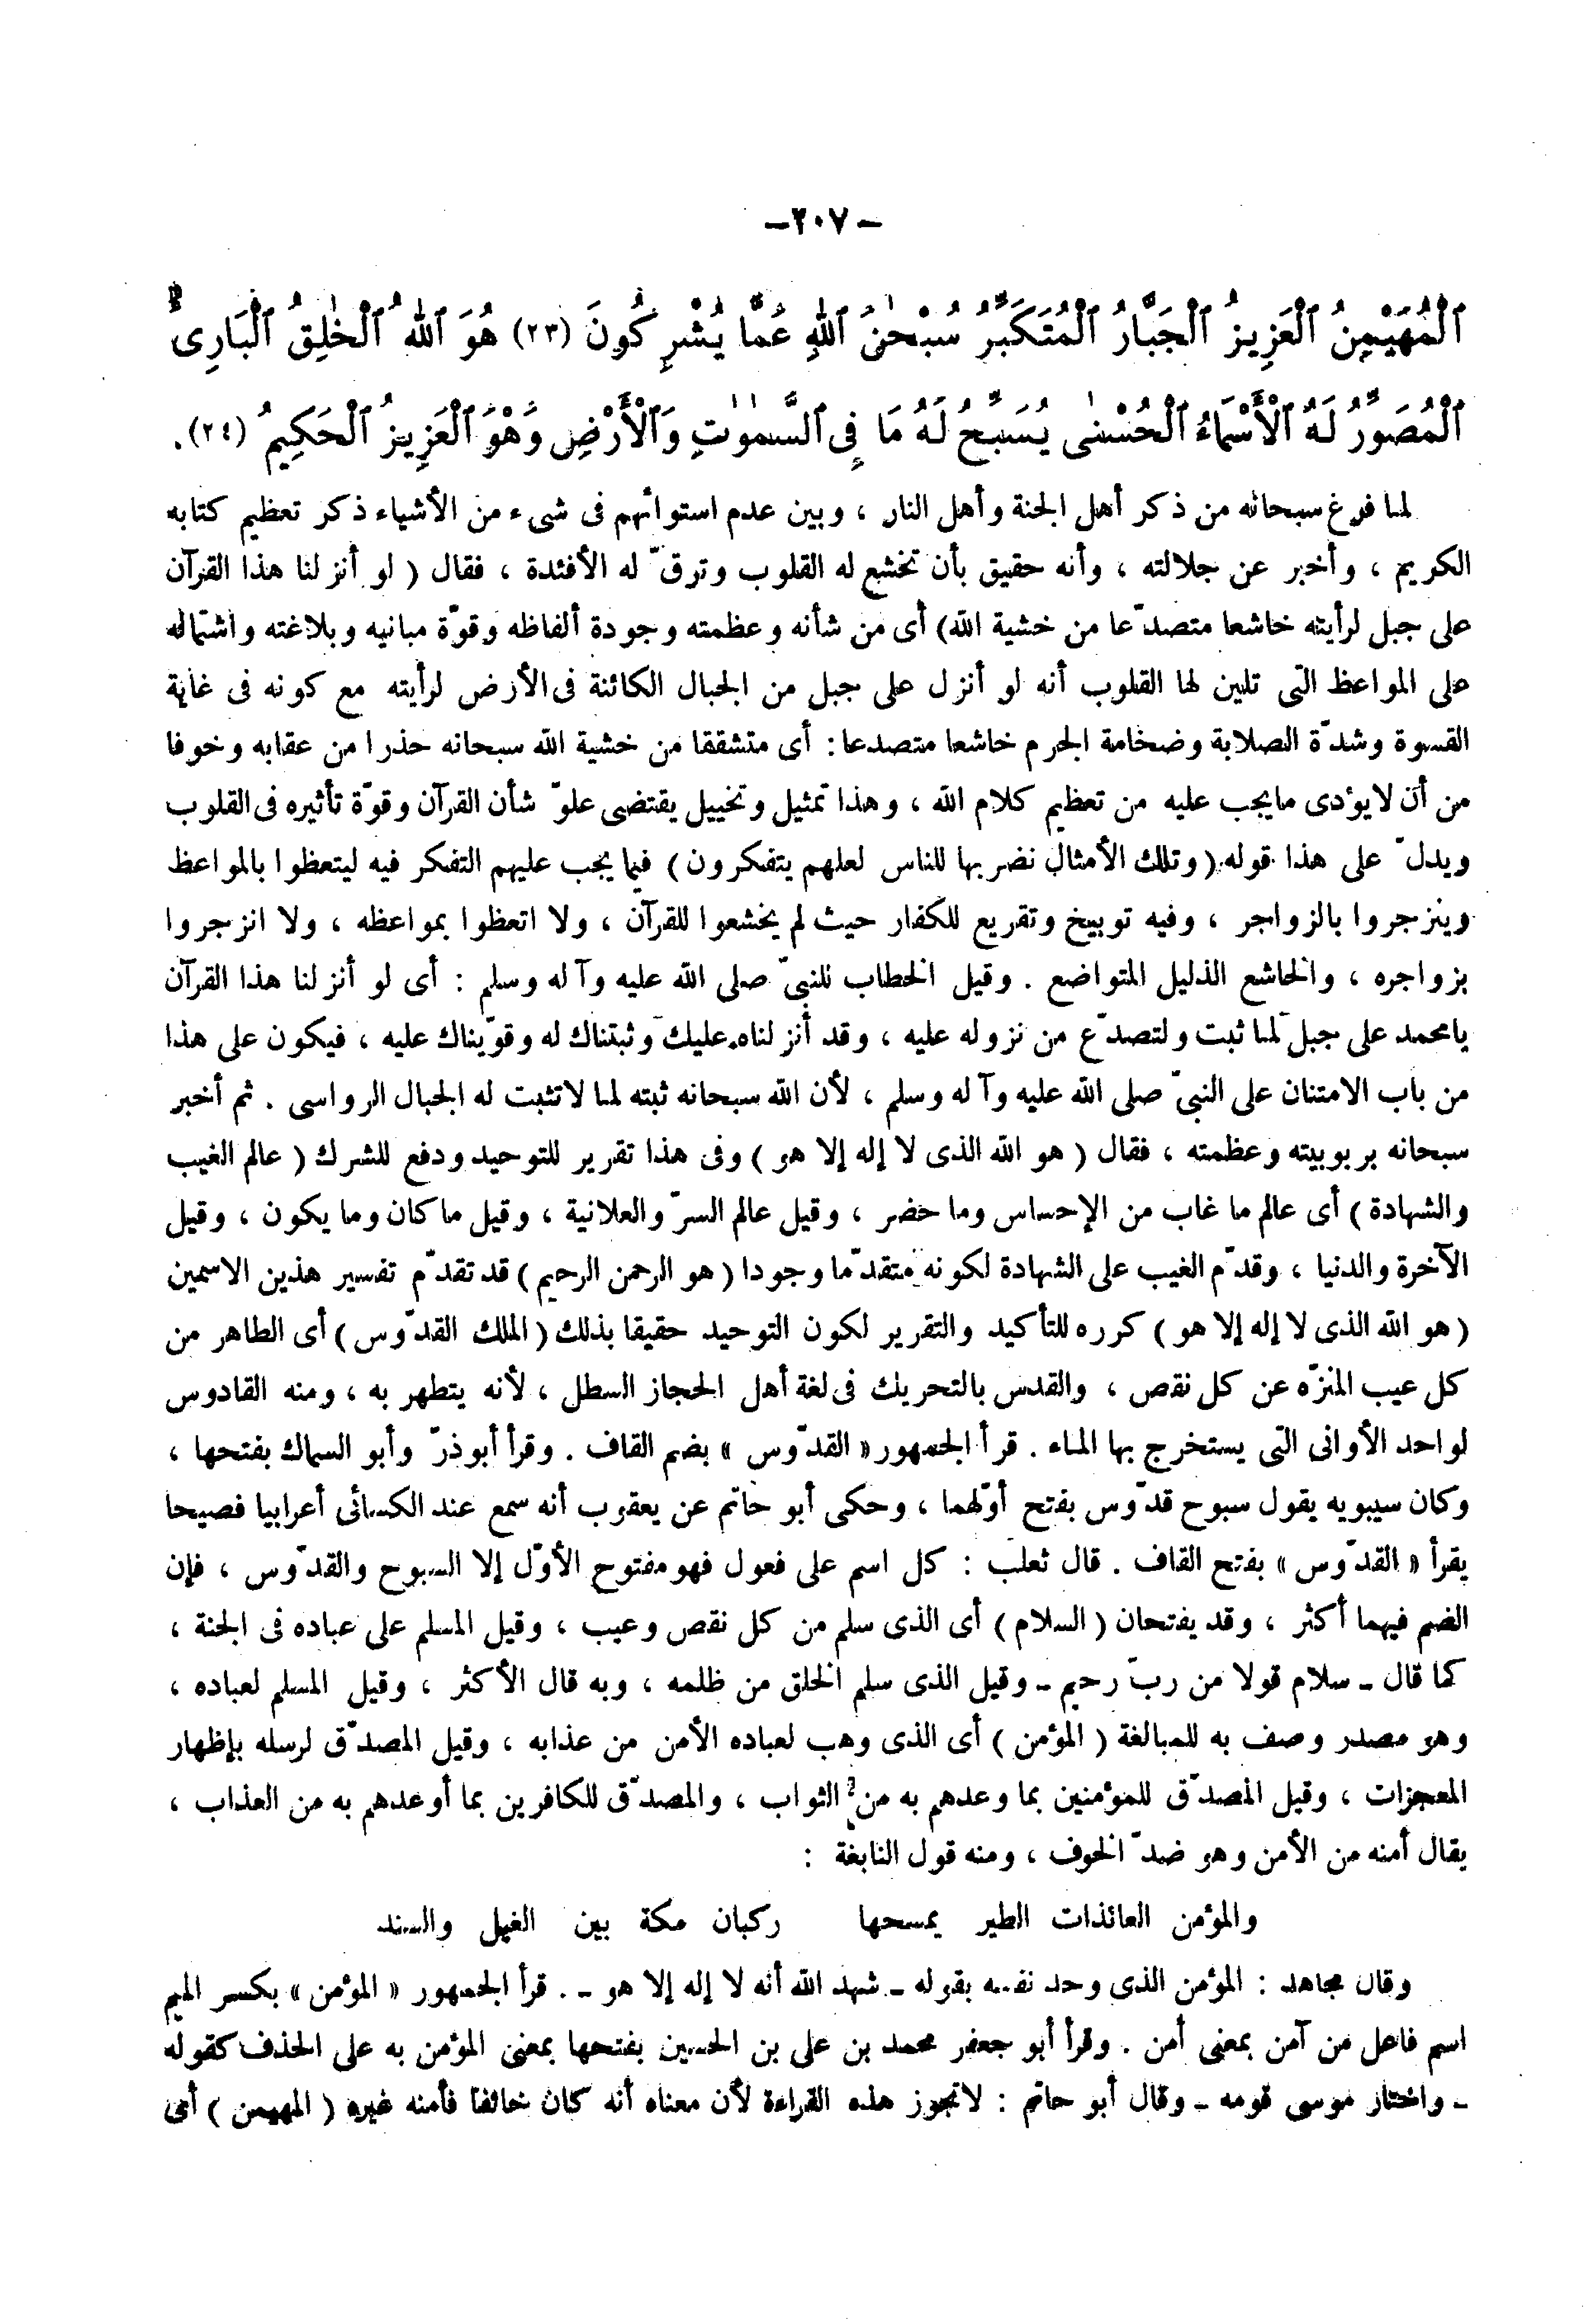 -٢٠٧-
ٱلْمُهَيْمِنُ ٱلْعَزِيزُ ٱلْجَبَّارُ ٱلْمُتَكَبِّرُ سُبْحٰنَ ٱللهِ عَمَّا يُشْرِكُونَ (٢٣) هُوَ ٱللهُ ٱلْخٰلِقُ ٱلْبَارِئُ
ٱلْمُصَوِّرُ لَهُ ٱلْأَسْمَاءُ ٱلْحُسْنىٰ يُسَبِّحُ لَهُ مَا فِى ٱلسَّمٰوٰتِ وَٱلْأَرْضِ وَهُوَ ٱلْعَزِيزُ ٱلْحَكِيمُ (٢٤).
لما فرغ سبحانه من ذكر أهل الجنة وأهل النار ، وبين عدم استوائهم فى شىء من الأشياء ذكر تعظيم كتابه
الكريم ، وأخبر عن جلالته ، وأنه حقيق بأن تخشع له القلوب وترقّ له الأفئدة ، فقال ( لو أنزلنا هذا القرآن
على جبل لرأيته خاشعا متصدّعا من خشية الله) أى من شأنه وعظمته وجودة ألفاظه وقوّة مبانيه وبلاغته واشتماله
على المواعظ التى تلين لها القلوب أنه لو أنزل على جبل من الجبال الكائنة فى الأرض لرأيته مع كونه فى غاية
القسوة وشدّة الصلابة وضخامة الجرم خاشعا متصدعا: أى متشققا من خشية الله سبحانه حذرا من عقابه وخوفا
من أن لايؤدى مايجب عليه من تعظيم كلام الله ، وهذا تمثيل وتخييل يقتضى علوّ شأن القرآن وقوّة تأثيره فى القلوب
ويدلّ على هذا قوله (وتلك الأمثال نضربها للناس لعلهم يتفكرون) فيما يجب عليهم التفكر فيه ليتعظوا بالمواعظ
وينزجروا بالزواجر ، وفيه توبيخ وتقريع للكفار حيث لم يخشعوا للقرآن ، ولا اتعظوا بمواعظه ، ولا انزجروا
بزواجره ، والخاشع الذليل المتواضع . وقيل الخطاب للنبىّ صلى الله عليه وآله وسلم : أى لو أنزلنا هذا القرآن
يامحمد على جبل لما ثبت ولتصدّع من نزوله عليه ، وقد أنزلناه عليك وثبتناك له وقوّيناك عليه ، فيكون على هذا
من باب الامتنان على النبىّ صلى الله عليه وآله وسلم ، لأن الله سبحانه ثبته لما لاتثبت له الجبال الرواسى . ثم أخبر
سبحانه بربوبيته وعظمته ، فقال ( هو الله الذى لا إله إلا هو ) وفى هذا تقرير للتوحيد ودفع للشرك ( عالم الغيب
والشهادة ) أى عالم ما غاب من الإحساس وما حضر ، وقيل عالم السرّ والعلانية ، وقيل ما كان وما يكون ، وقيل
الآخرة والدنيا ، وقدّم الغيب على الشهادة لكونه متقدّما وجودا ( هو الرحمن الرحيم ) قد تقدّم تفسير هذين الاسمين
( هو الله الذى لا إله إلا هو ) كرره للتأكيد والتقرير لكون التوحيد حقيقا بذلك ( الملك القدّوس ) أى الطاهر من
كل عيب المنزّه عن كل نقص ، والقدس بالتحريك فى لغة أهل الحجاز السطل ، لأنه يتطهر به ، ومنه القادوس
لواحد الأوانى التى يستخرج بها الماء . قرأ الجمهور « القدّوس » بضم القاف . وقرأ أبو ذرّ وأبو السماك بفتحها ،
وكان سيبويه يقول سبوح قدّوس بفتح أوّلهما ، وحكى أبو حاتم عن يعقوب أنه سمع عند الكسائى أعرابيا فصيحا
يقرأ « القدّوس » بفتح القاف . قال ثعلب : كل اسم على فعول فهو مفتوح الأوّل إلا السبوح والقدّوس ، فإن
الضم فيهما أكثر ، وقد يفتحان ( السلام ) أى الذى سلم من كل نقص وعيب ، وقيل المسلم على عباده فى الجنة ،
كما قال ـ سلام قولا من ربّ رحيم ـ وقيل الذى سلم الخلق من ظلمه ، وبه قال الأكثر ، وقيل المسلم لعباده ،
وهو مصدر وصف به للمبالغة ( المؤمن ) أى الذى وهب لعباده الأمن من عذابه ، وقيل المصدّق لرسله بإظهار
المعجزات ، وقيل المصدّق للمؤمنين بما وعدهم به من الثواب ، والمصدّق للكافرين بما أوعدهم به من العذاب ،
يقال أمنه من الأمن وهو ضدّ الخوف ، ومنه قول النابغة :
والمؤمن العائذات الطير يمسحها ركبان مكة بين الغيل والسند
وقال مجاهد : المؤمن الذى وحد نفسه بقوله ـ شهد الله أنه لا إله إلا هو ـ . قرأ الجمهور « المؤمن » بكسر الميم
اسم فاعل من آمن بمعنى أمن . وقرأ أبو جعفر محمد بن على بن الحسين بفتحها بمعنى المؤمن به على الحذف كقوله
ـ واختار موسى قومه ـ وقال أبو حاتم : لاتجوز هذه القراءة لأن معناه أنه كان خائفا فأمنه غيره ( المهيمن ) أى